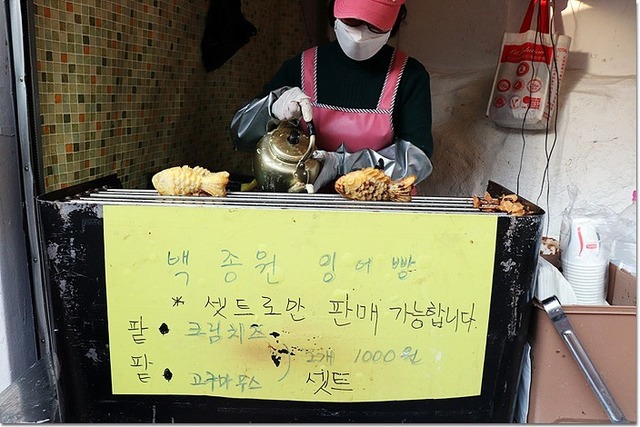 백종원 잉어빵
* 셋트로만 판매 가능합니다.
팥 ● 크림치즈
2개 1000원
팥 ● 고구마무스
셋트